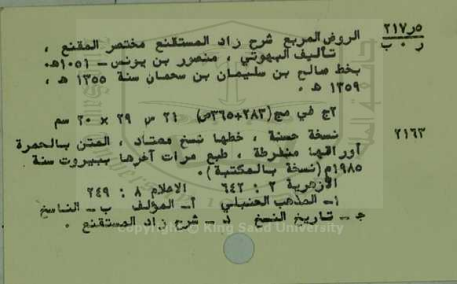 ٢١٧ر٥
ر . ب
الروض المربع شرح زاد المستقنع مختصر المقنع ،
تأليف البهوتي ، منصور بن يونس – ١٠٥١هـ.
بخط صالح بن سليمان بن سحمان سنة ١٣٥٥ هـ ،
١٣٥٩ هـ .
٢ج في مج (٢٨٣+٣٦٥ص) ٢٤ س ٢٩ × ٢٠ سم
٢١٦٣
نسخة حسنة ، خطها نسخ معتاد ، المتن بالحمرة
أوراقها منفرطة ، طبع مرات آخرها ببيروت سنة
١٩٨٥م (نسخة بالمكتبة) .
الأزهرية ٢ : ٦٤٢ الاعلام ٨ : ٢٤٩
١– المذهب الحنبلي أ– المؤلف ب – الناسخ
جـ – تاريخ النسخ د – شرح زاد المستقنع .
Copyright © King Saud University